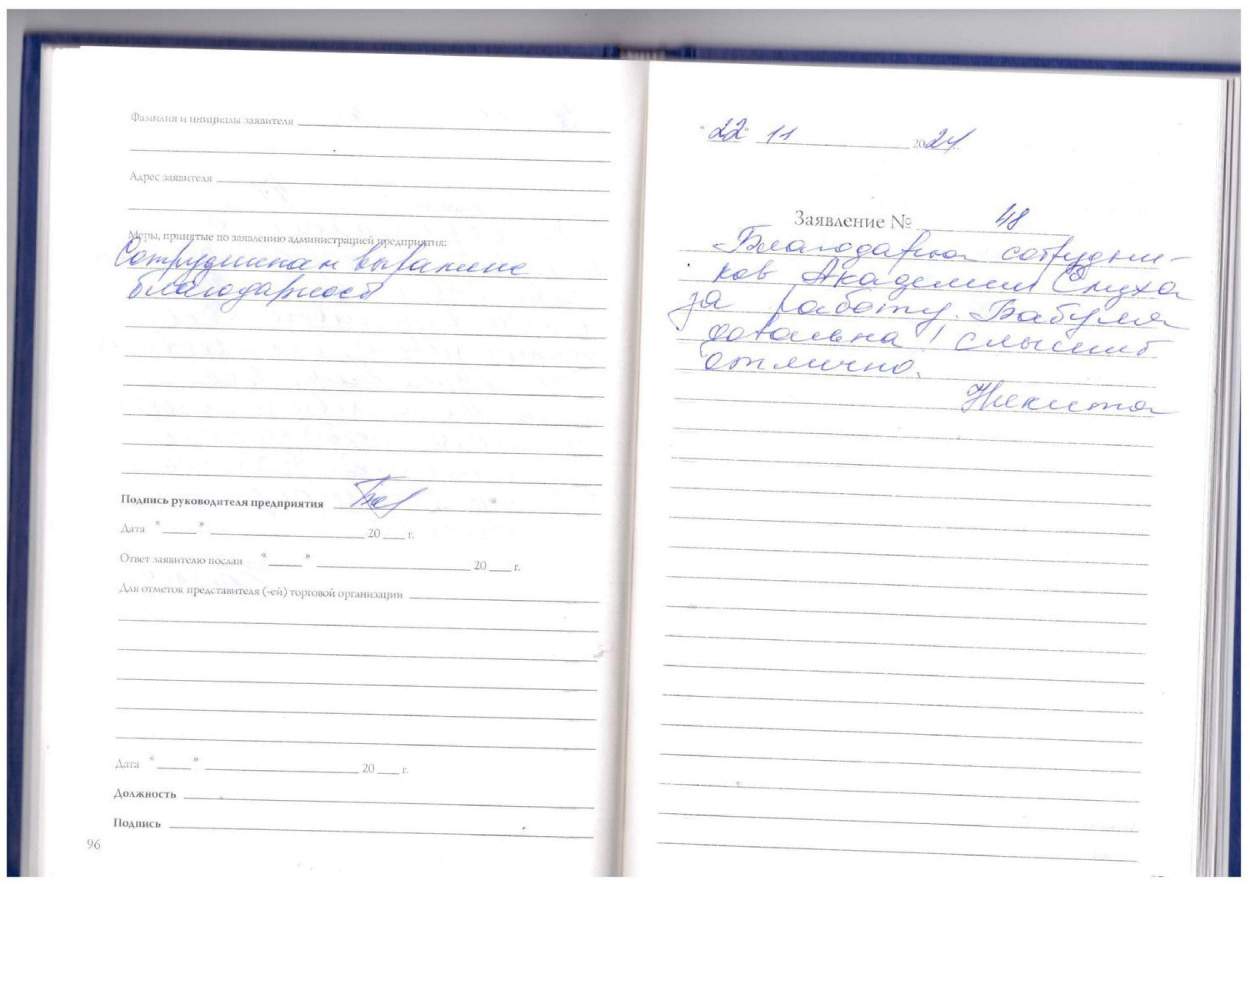 Фамилия и инициалы заявителя
Адрес заявителя
Меры, принятые по заявлению администрацией предприятия:
Сотрудникам выражена
благодарность
Подпись руководителя предприятия
Дата " " 20 г.
Ответ заявителю послан " " 20 г.
Для отметок представителя (-ей) торговой организации
Дата " " 20 г.
Должность
Подпись
96
"22" 11 2021
Заявление № 48
Благодарю сотрудни-
ков Академии Слуха
за работу. Бабуля
довольна! слышит
отлично.
Никита